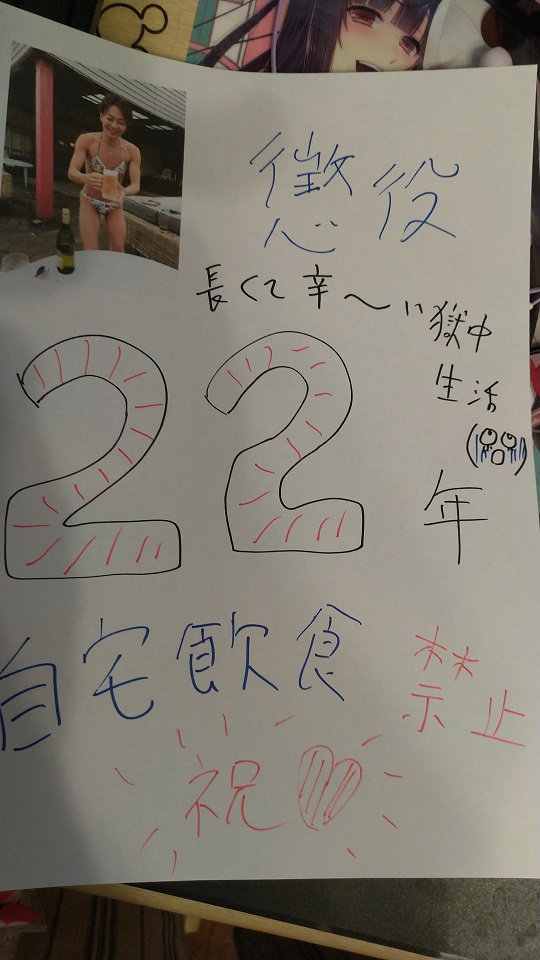 懲役
長くて辛〜い獄中
生活
22年
自宅飲食禁止
祝